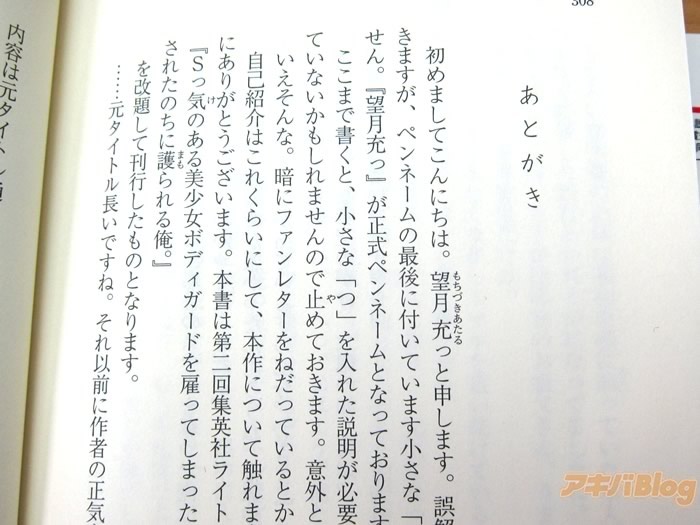 308
あとがき
初めましてこんにちは。望月充っと申します。誤解
もちづきあたる
きますが、ペンネームの最後に付いています小さな「
せん。『望月充っ』が正式ペンネームとなっております
ここまで書くと、小さな「つ」を入れた説明が必要
ていないかもしれませんので止めておきます。意外と
や
いえそんな。暗にファンレターをねだっているとか
自己紹介はこれくらいにして、本作について触れま
にありがとうございます。本書は第二回集英社ライト
『Sっ気のある美少女ボディガードを雇ってしまった
け
されたのちに護られる俺。』
まも
を改題して刊行したものとなります。
……元タイトル長いですね。それ以前に作者の正気
内容は元タイトル通
アキバBlog